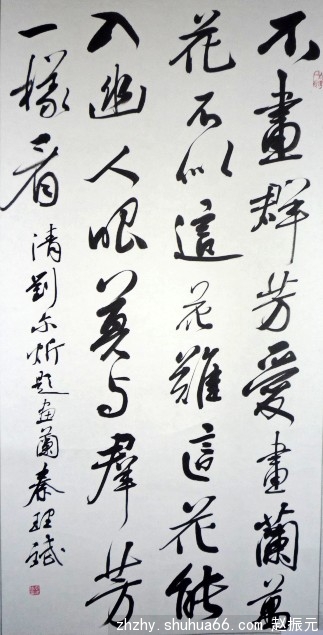 不畫群芳愛畫蘭萬
花不似這花難這花能
入幽人眼莫与羣芳
一樣看
清劉尔炘題画蘭秦理斌
zhzhy.shuhua66.com 赵振元